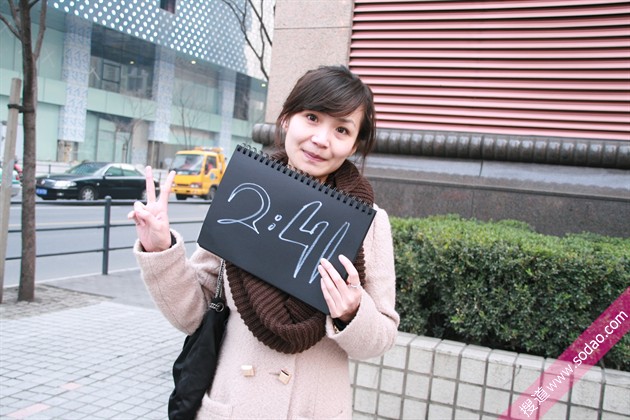 2:41
搜道 www.sodao.com